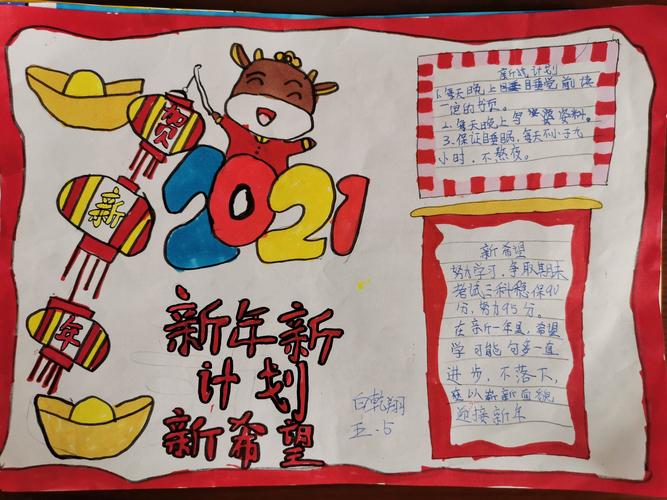 贺
新
年
2021
新年新
计划
新希望
白乾翔
五.5
新年计划
1.每天晚上睡觉前读
一定的书页。
2.每天晚上写资料。
3.保证睡眠,每天不小于九
小时,不熬夜。
新希望
努力学习,争取期末
考试三科稳保90
分,努力95分。
在新一年里,希望
学可能句多一直
进步,不落下,
我以崭新面貌
迎接新年